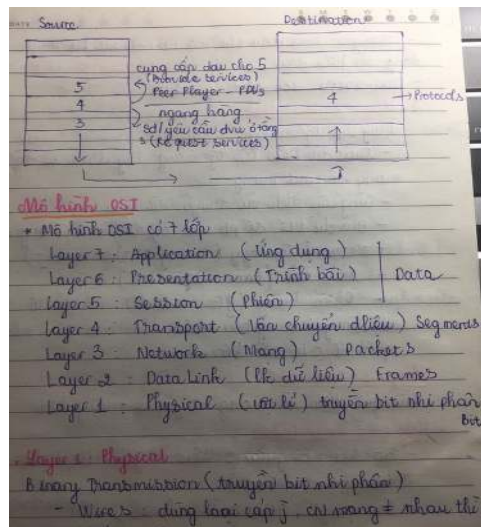 Source
Destination
cung cấp dvu cho 5
(Provide services)
5
Peer Player - PDUs
4
4
Protocols
ngang hàng
3
sd/yêu cầu dvu ở tầng
3 (Request services)
Mô hình OSI
* Mô hình OSI có 7 lớp
Layer 7 : Application (Ứng dụng)
Layer 6 : Presentation (Trình bài) Data
Layer 5 : Session (Phiên)
Layer 4 : Transport (Vận chuyển dliệu) Segments
Layer 3 : Network (Mạng) Packets
Layer 2 : Data Link (lk dữ liệu) Frames
Layer 1 : Physical (vật lí) truyền bit nhị phân
Bit
Layer 1 : Physical
Binary Transmission (truyền bit nhị phân)
- Wires : dùng loại cáp j, mạng ≠ nhau thì